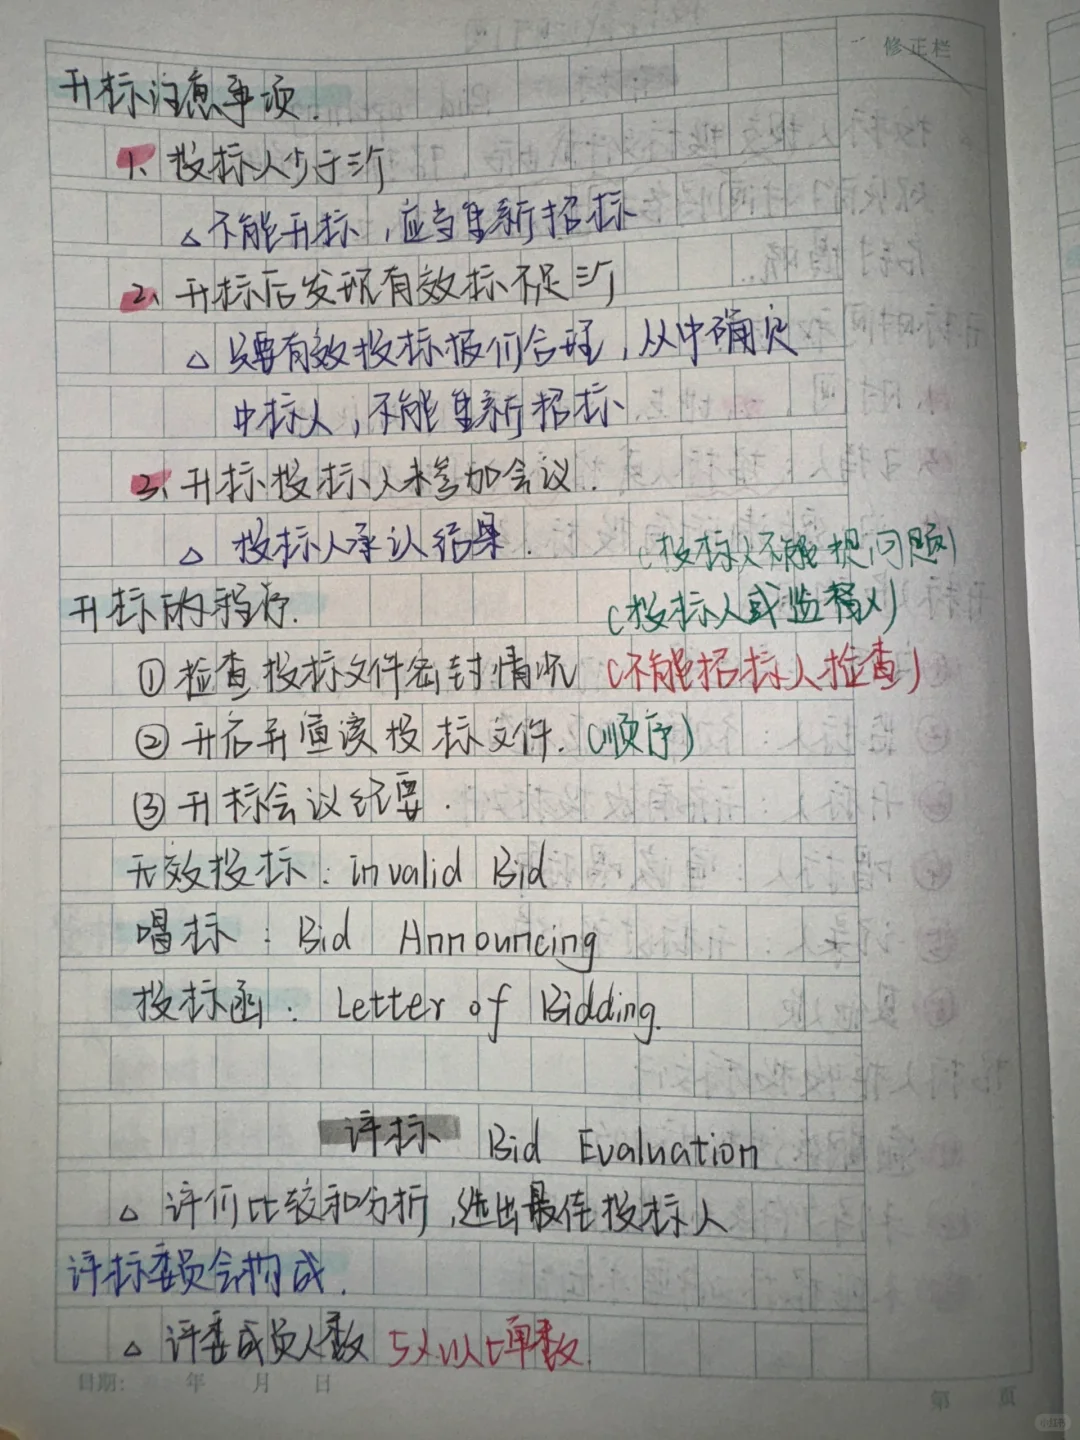 修正栏
开标注意事项.
1、投标人少于三个
△不能开标，应当重新招标
2、开标后发现有效标不足三个
△只要有效投标报价合理，从中确定
中标人，不能重新招标
3、开标投标人未参加会议.
△投标人承认结果.
(投标人不能提问题)
开标的程序.
(投标人或监督人)
①检查投标文件密封情况 (不能招标人检查)
②开启并宣读投标文件. (顺序)
③开标会议纪要.
无效投标: invalid Bid
唱标: Bid Announcing
投标函: Letter of Bidding.
评标 Bid Evaluation
△评价比较和分析,选出最佳投标人
评标委员会构成.
△评委成员人数 5人以上单数
日期: 年 月 日
第 页
小红书